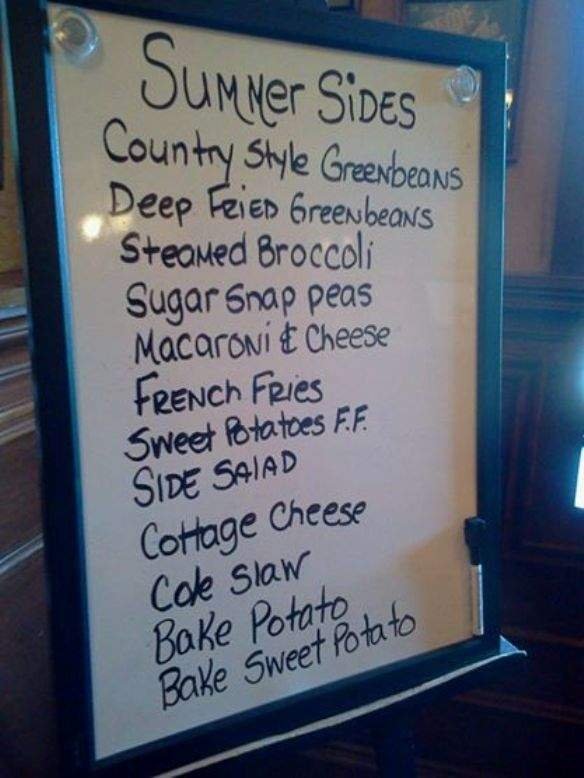 Summer Sides
Country Style Greenbeans
Deep Fried Greenbeans
Steamed Broccoli
Sugar Snap peas
Macaroni & Cheese
French Fries
Sweet Potatoes F.F.
Side Salad
Cottage Cheese
Cole Slaw
Bake Potato
Bake Sweet Potato